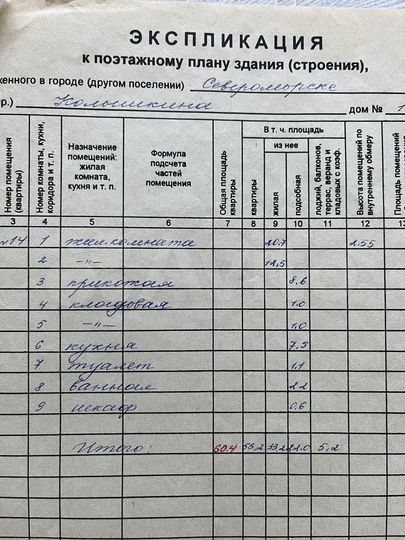 ЭКСПЛИКАЦИЯ
к поэтажному плану здания (строения),
женного в городе (другом поселении) Североморске
ер.) Колышкина дом № 1
Номер помещения (квартиры)
Номер комнаты, кухни, коридора и т. п.
Назначение помещений: жилая комната, кухня и т. п.
Формула подсчета частей помещения
Общая площадь квартиры
В т. ч. площадь
квартиры
из нее
жилая
подсобная
лоджий, балконов, террас, веранд и кладовых с коэф.
Высота помещений по внутреннему обмеру
Площадь помещений
3 4 5 6 7 8 9 10 11 12 13
14 1 жил. комната 20.7 2.55
2 -"- 12,5
3 прихожая 8.6
4 кладовая 1.0
5 -"- 1.0
6 кухня 7,5
7 туалет 1,1
8 ванная 2.2
9 шкаф 0.6
Итого: 60.4 55,2 33,2 22.0 5,2